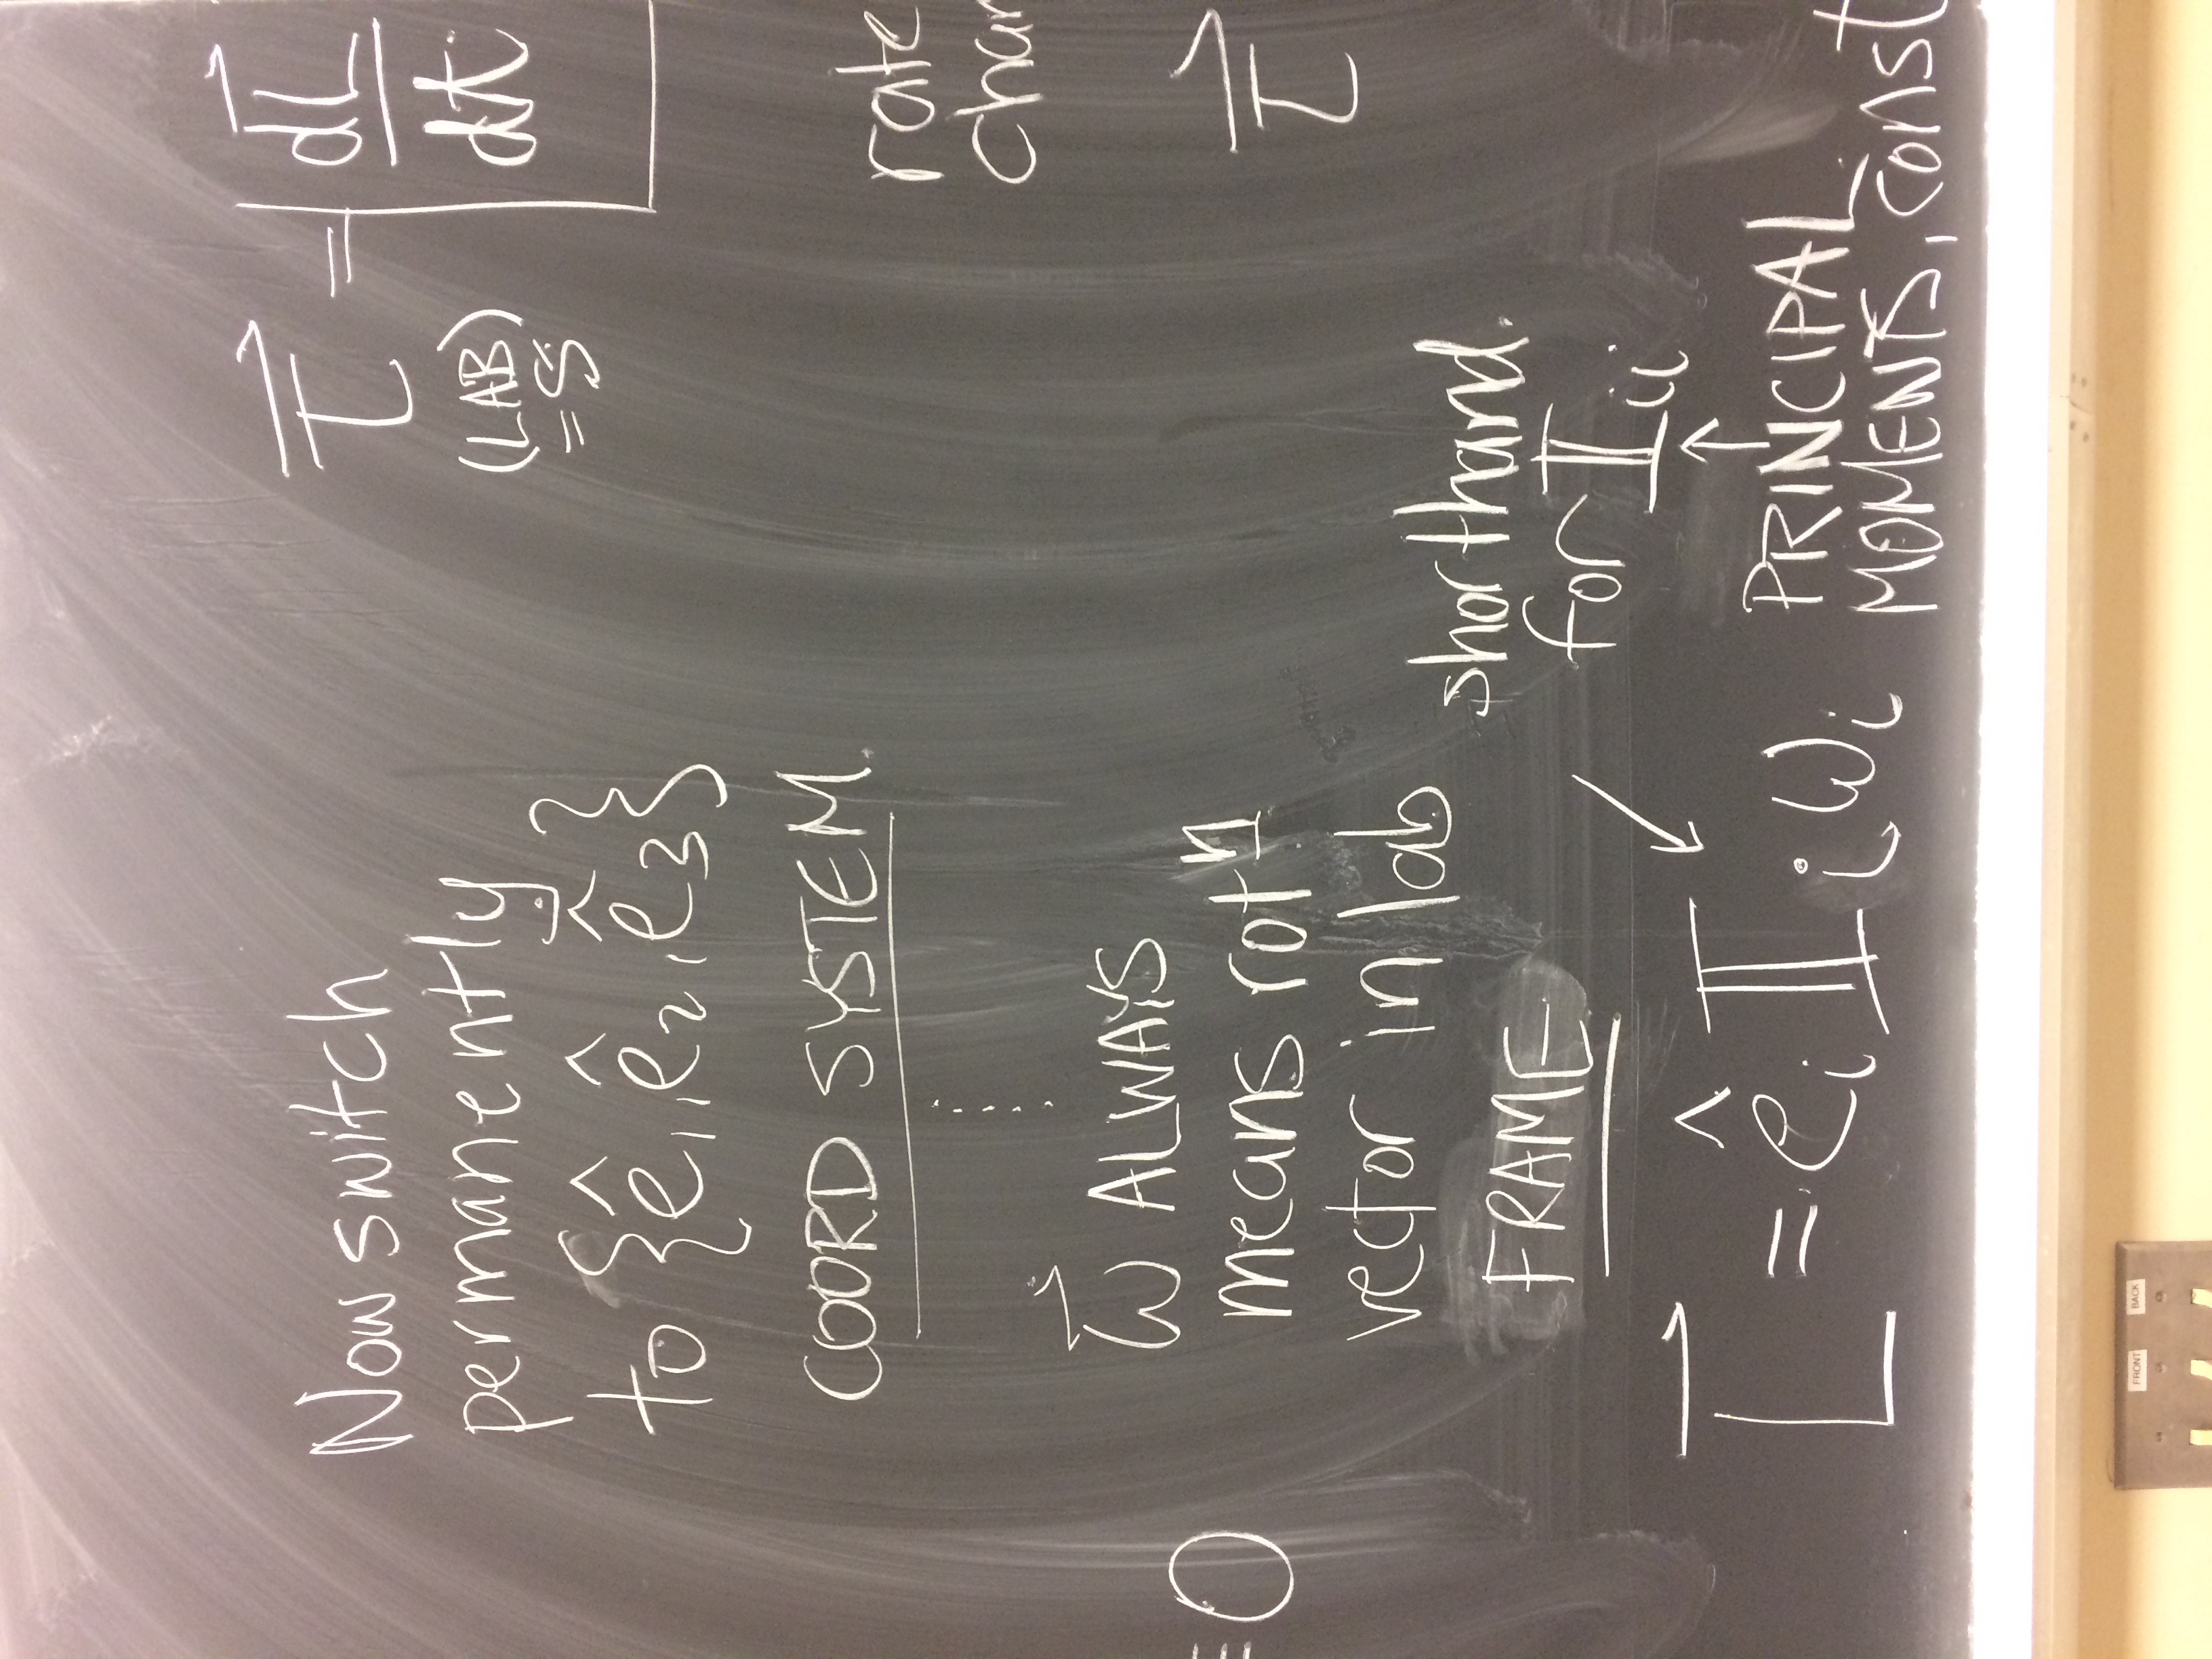 Now switch
permanently
to {ê₁, ê₂, ê₃}
COORD SYSTEM.
.....
ω⃗ ALWAYS
means rotⁿ
vector in lab
FRAME
L⃗ = êᵢ Iᵢ ωᵢ
shorthand.
for Iᵢᵢ
↑
PRINCIPAL
MOMENTS, const
τ⃗ = dL⃗/dt
(LAB)
= S
rate
chan
τ⃗
= 0
FRONT
BACK